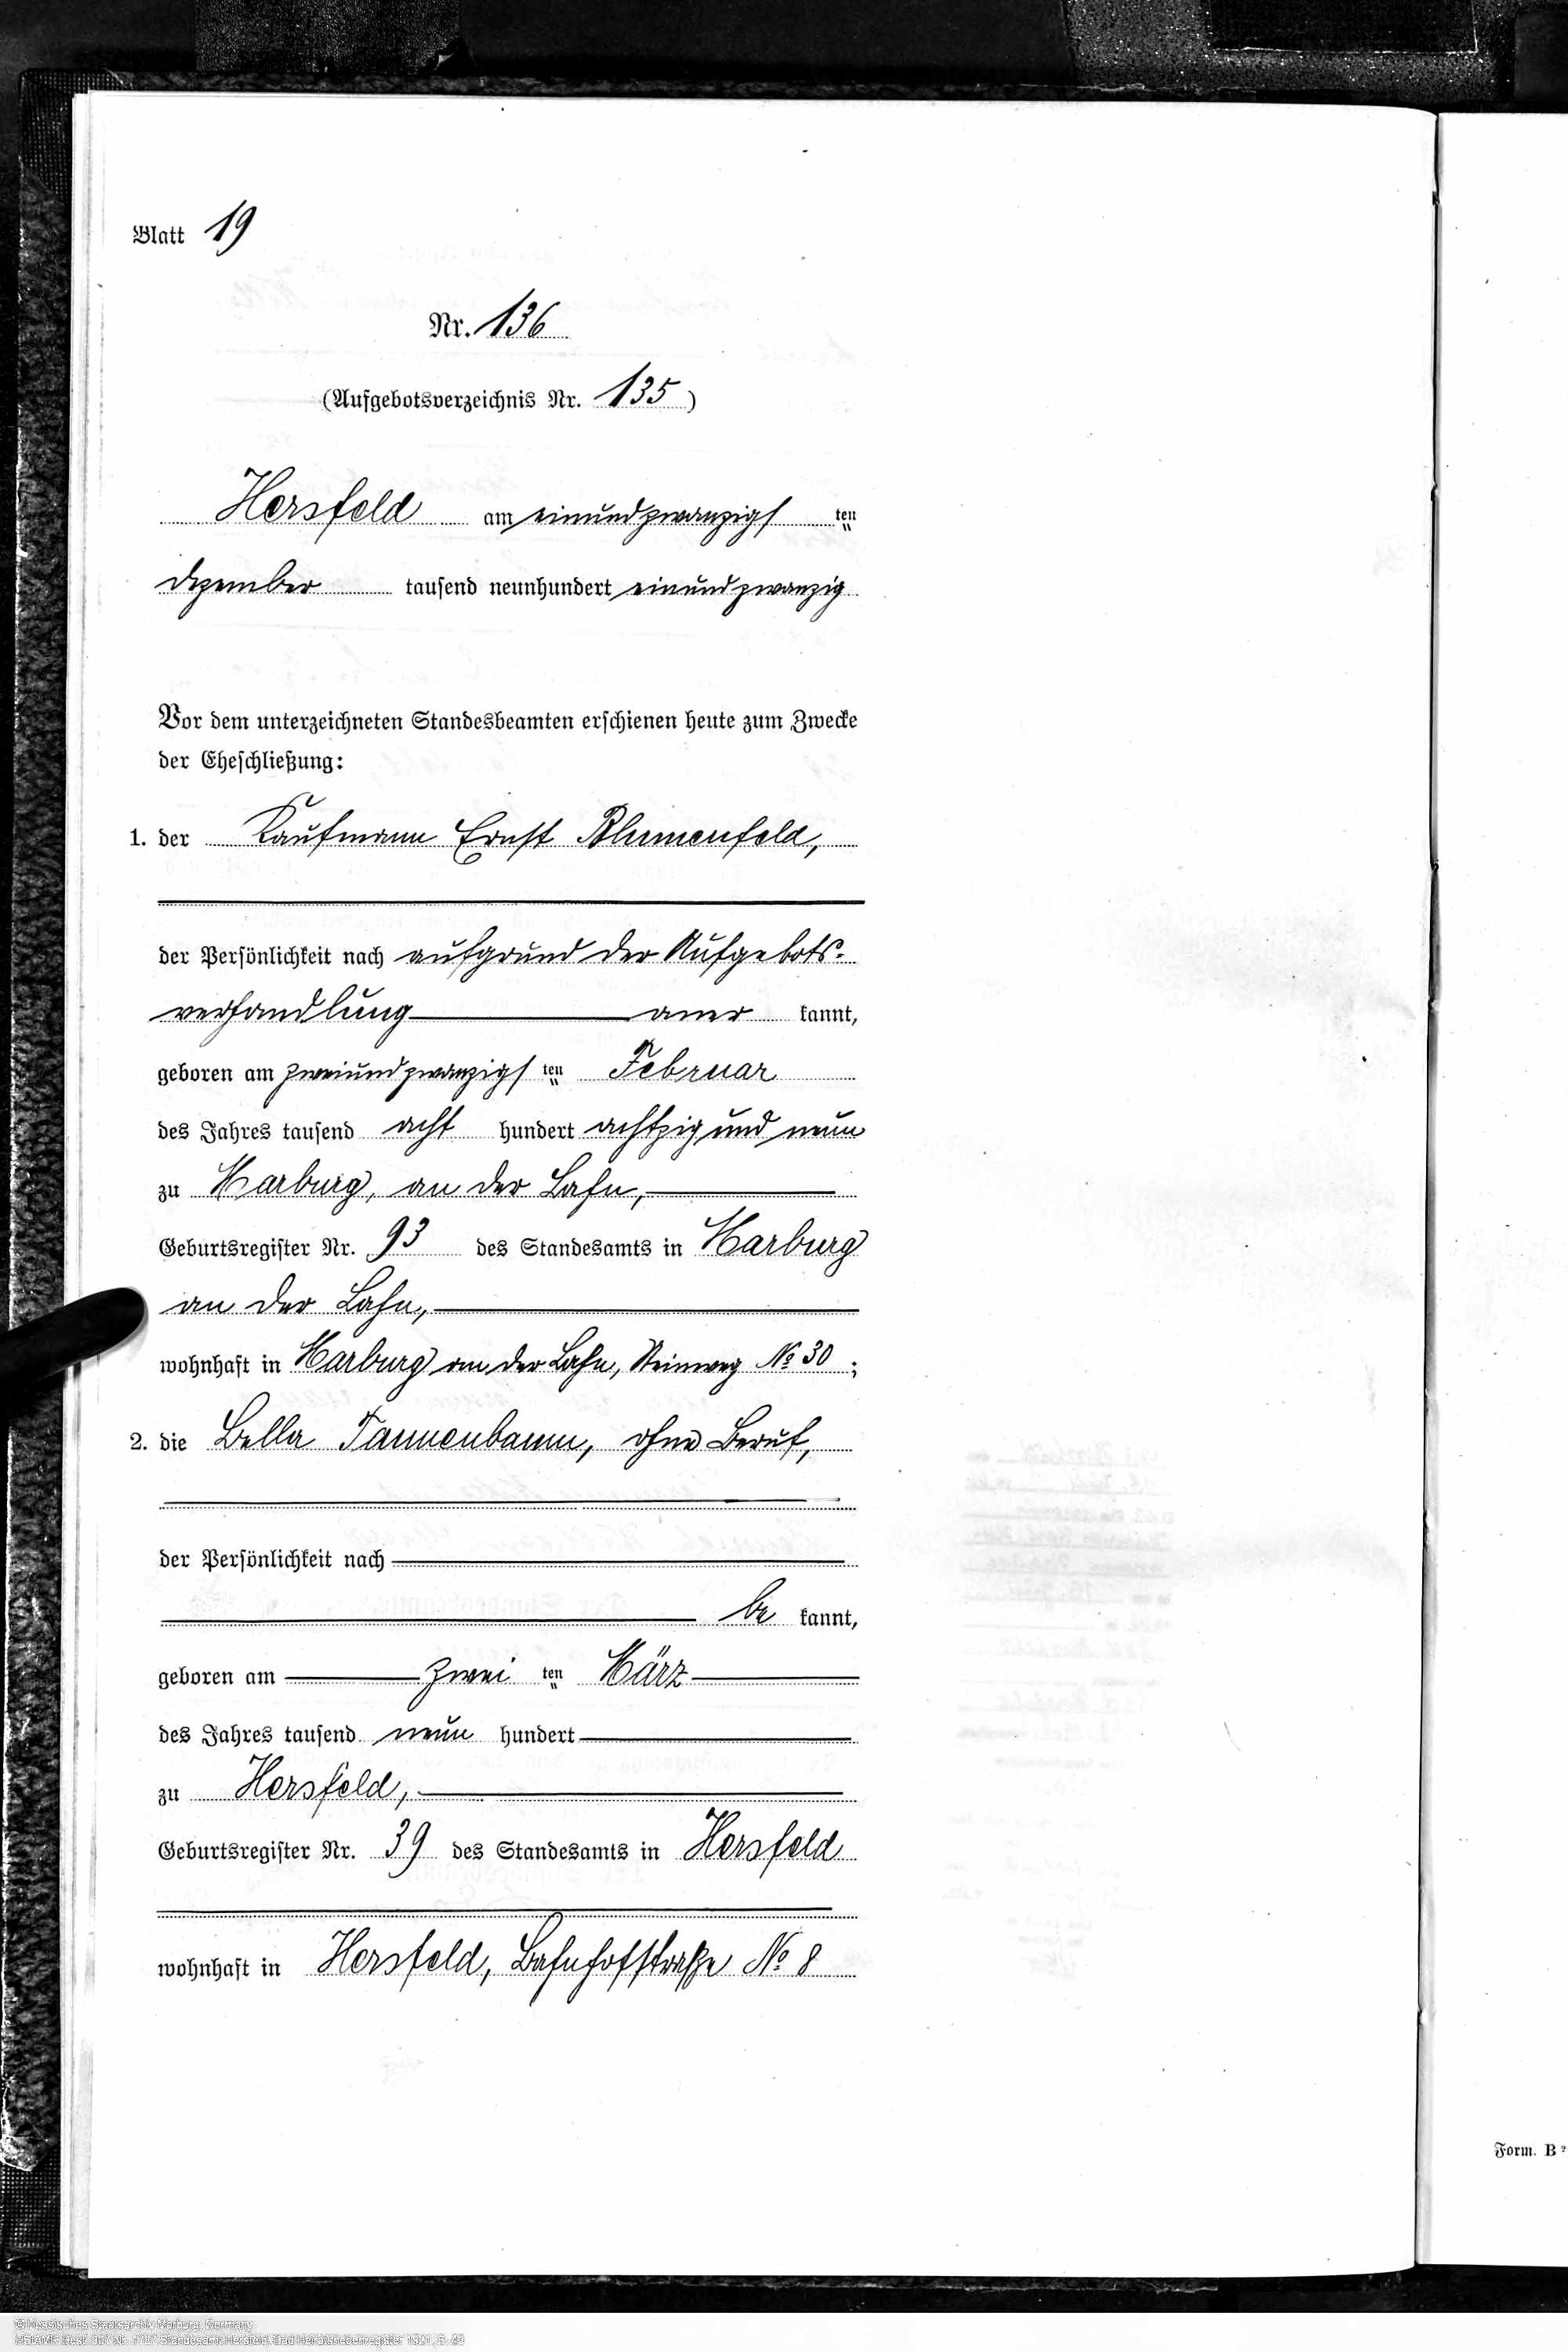 Blatt 19
Nr. 136
(Aufgebotsverzeichnis Nr. 135)
Hersfeld am einundzwanzigsten
Dezember tausend neunhundert einundzwanzig
Vor dem unterzeichneten Standesbeamten erschienen heute zum Zwecke
der Eheschließung:
1. der Kaufmann Ernst Blumenfeld,
der Persönlichkeit nach aufgrund der Aufgebots-
verhandlung aner kannt,
geboren am zweiundzwanzigsten Februar
des Jahres tausend acht hundert achtzig und neun
zu Marburg, an der Lahn,
Geburtsregister Nr. 93 des Standesamts in Marburg
an der Lahn,
wohnhaft in Marburg an der Lahn, Steinweg № 30;
2. die Bella Tannenbaum, ohne Beruf,
der Persönlichkeit nach
be kannt,
geboren am zwei ten März
des Jahres tausend neun hundert
zu Hersfeld,
Geburtsregister Nr. 39 des Standesamts in Hersfeld
wohnhaft in Hersfeld, Bahnhofstraße № 8
Form. B